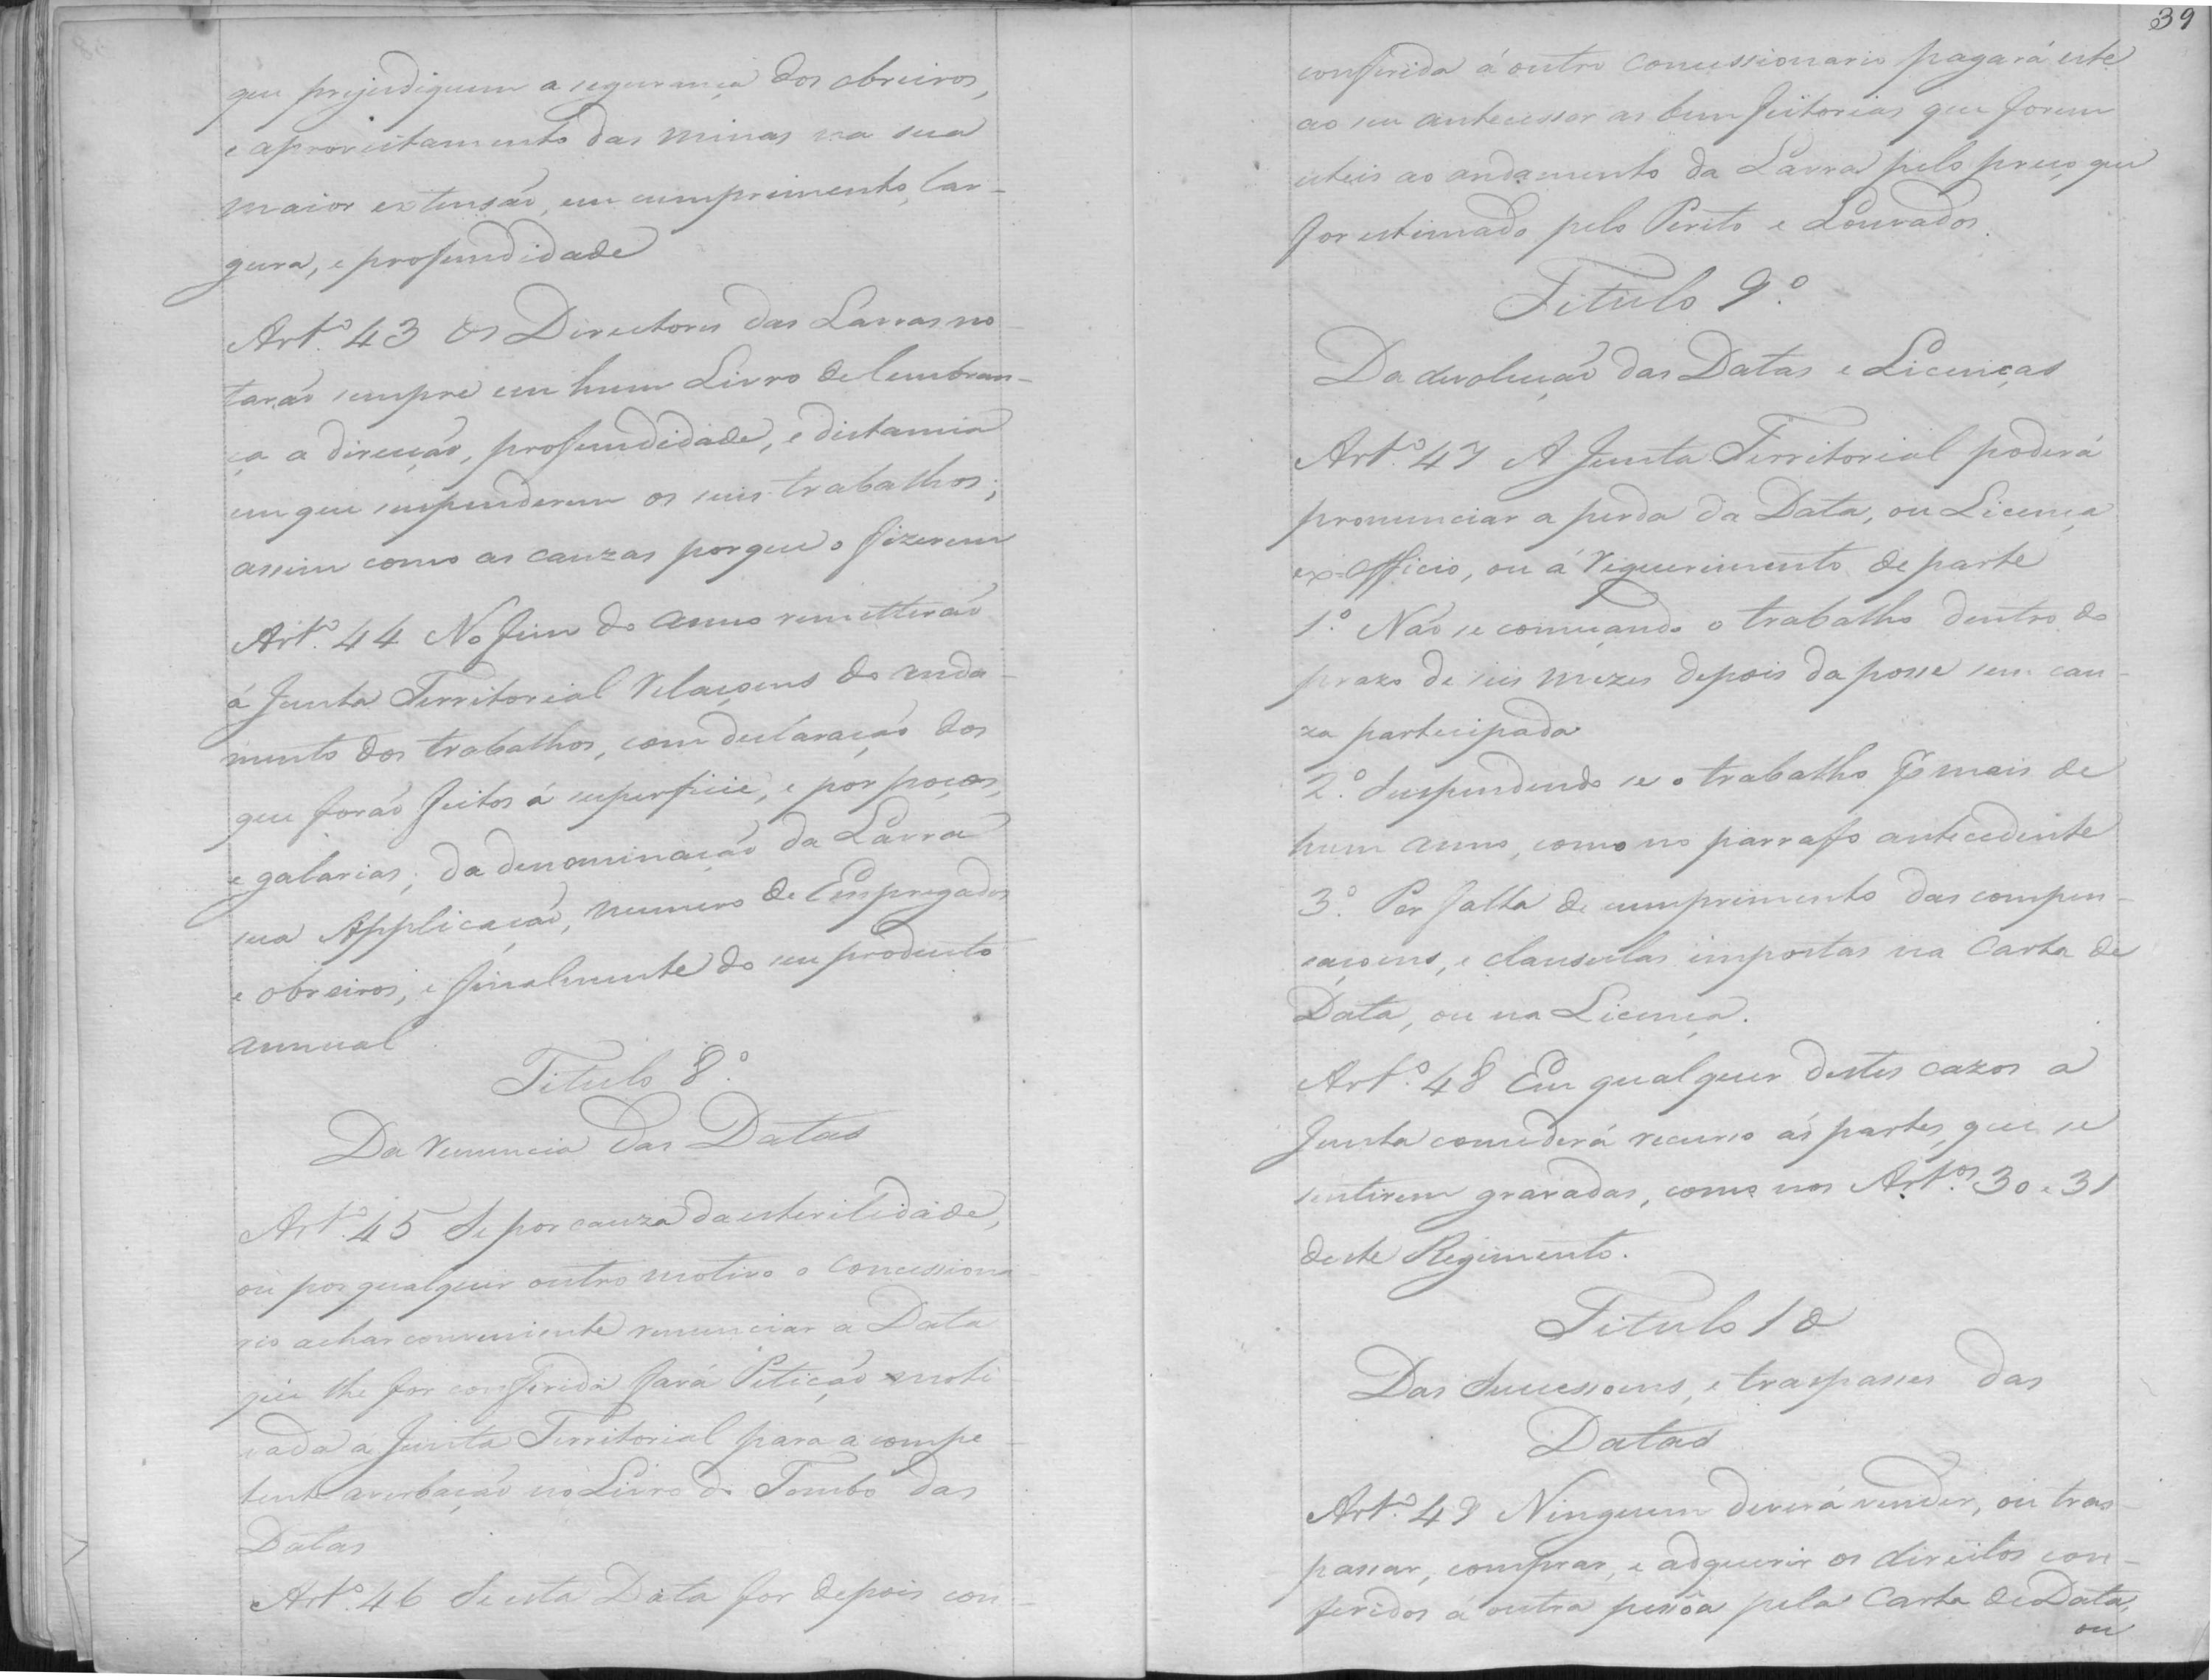 que prejudiquem a segurança dos obreiros,
e aproveitamento das minas na sua
maior extensão, em cumprimento, lar-
gura, e profundidade
Art.º 43 Os Directores das Lavras no-
tarão sempre em hum Livro de lembran-
ça a direcção, profundidade, e distancia
em que suspenderem os seus trabalhos;
assim como as cauzas porque o fizerem
Art.º 44 No fim do anno remetterão
á Junta Territorial relaçoens do anda-
mento dos trabalhos, com declaração dos
que forão feitos á superficie, e por poços,
e galarias; da denominação da Lavra
sua Applicação, numero de Empregados
e obreiros, e finalmente do seu producto
annual
Titulo 8.º
Da renuncia das Datas
Art.º 45 Se por cauza da esterilidade,
ou por qualquer outro motivo o Concessiona-
rio achar conveniente renunciar a Data
que lhe for conferida fará Petição moti-
vada a Junta Territorial para a compe-
tente averbação no Livro do Tombo das
Datas
Art.º 46 Se esta Data for depois con-
39
conferida á outro Concessionario pagará este
ao seu antecessor as bemfeitorias que forem
uteis ao andamento da Lavra pelo preço que
for estimado pelo Perito e Louvados.
Titulo 9.º
Da devolução das Datas e Licenças
Art.º 47 A Junta Territorial poderá
pronunciar a perda da Data, ou Licença
ex-Officio, ou á requerimento de parte
1.º Não se começando o trabalho dentro do
prazo de seis mezes depois da posse sem cau-
za participada
2.º Suspendendo se o trabalho p.r mais de
hum anno, como no parrafo antecedente
3.º Por falta de cumprimento das compen-
saçoens, e clausulas impostas na Carta de
Data, ou na Licença.
Art.º 48 Em qualquer destes cazos a
Junta concederá recurso ás partes, que se
sentirem gravadas, como nos Art.os 30 e 31
deste Regimento.
Titulo 10
Das Successoens, e traspasses das
Datas
Art.º 49 Ninguem deverá vender, ou tras-
passar, comprar, e adquerir os direitos con-
feridos á outra pessôa pela Carta de Data,
ou